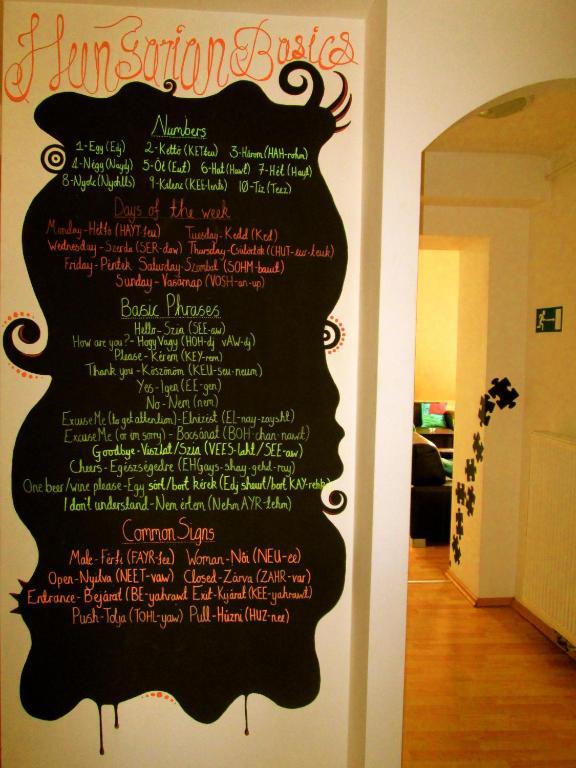 Hungarian Basics
Numbers
1-Egy (Edj) 2-Kettő (KETteu) 3-Három (HAH-rohm)
4-Négy (Naydj) 5-Öt (Eut) 6-Hat (Hawt) 7-Hét (Hayt)
8-Nyolc (Nyohlts) 9-Kilenc (KEE-lents) 10-Tíz (Teez)
Days of the week
Monday-Hétfő (HAYT-feu) Tuesday-Kedd (Ked)
Wednesday-Szerda (SER-daw) Thursday-Csütörtök (CHUT-eur-teuk)
Friday-Péntek Saturday-Szombat (SOHM-bawt)
Sunday-Vasárnap (VOSH-an-up)
Basic Phrases
Hello-Szia (SEE-aw)
How are you?-Hogy Vagy (HOH-dj vAW-dj)
Please-Kérem (KEY-rem)
Thank you-Köszönöm (KEU-seu-neum)
Yes-Igen (EE-gen)
No-Nem (nem)
Excuse Me (to get attention)-Elnézést (EL-nay-zaysht)
Excuse Me (or im sorry)-Bocsánat (BOH-chan-nawt)
Goodbye-Viszlat/Szia (VEES-laht/SEE-aw)
Cheers-Egészségedre (EHGays-shay-gehd-ray)
One beer/wine please-Egy sört/bort kérek (Edj sheurt/bort KAY-rehk)
I don't understand-Nem értem (Nehm AYR-tehm)
Common Signs
Male-Férfi (FAYR-fee) Woman-Női (NEU-ee)
Open-Nyitva (NEET-vaw) Closed-Zárva (ZAHR-var)
Entrance-Bejárat (BE-yahrawt) Exit-Kijárat (KEE-yahrawt)
Push-Tolja (TOHL-yaw) Pull-Húzni (HUZ-nee)